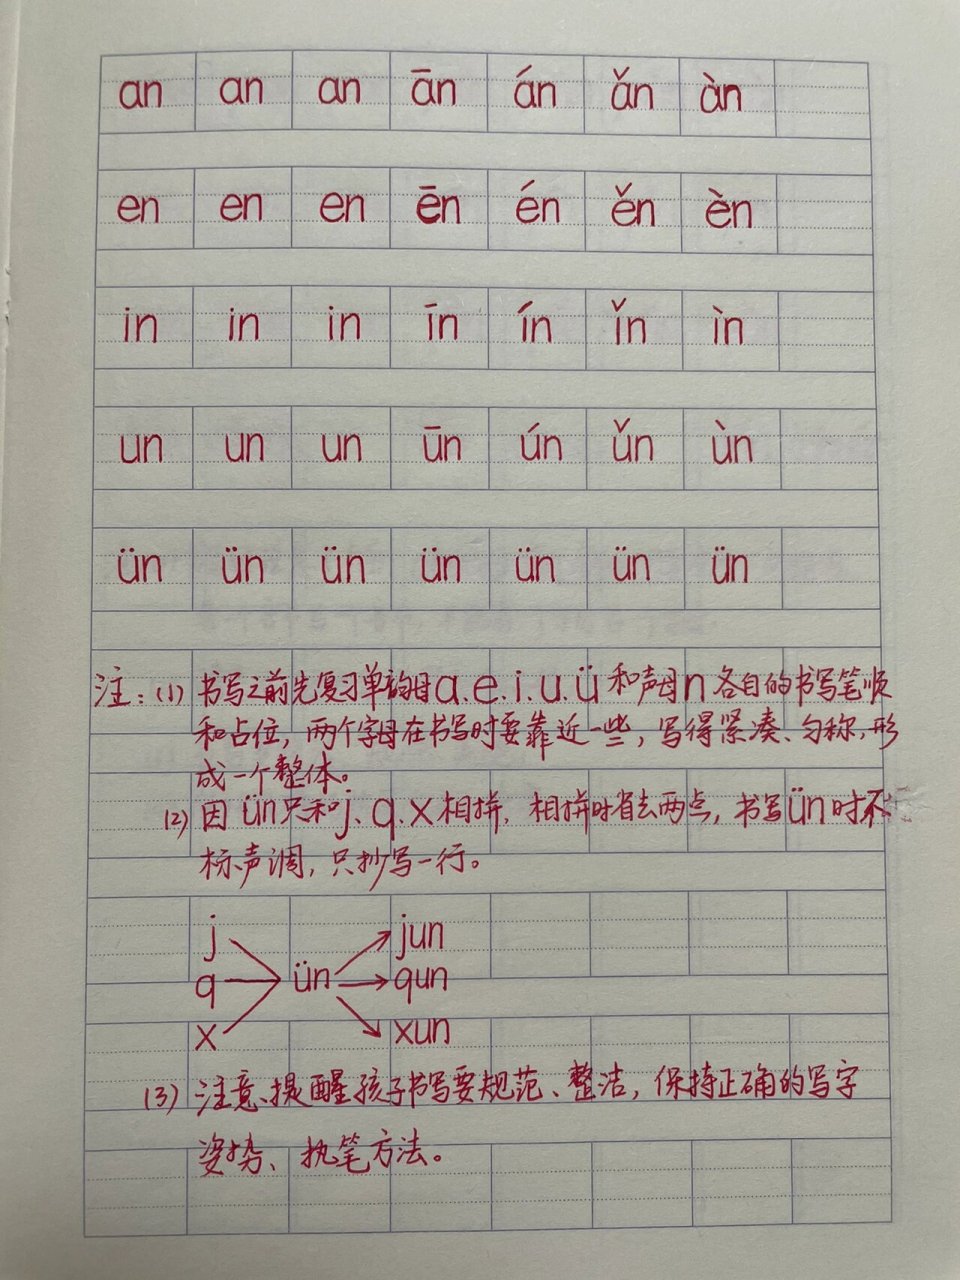 an an an ān án ǎn àn
en en en ēn én ěn èn
in in in īn ín ǐn ìn
un un un ūn ún ǔn ùn
ün ün ün ün ün ün ün
注：(1) 书写之前先复习单韵母a.e.i.u.ü和声母n各自的书写笔顺
和占位，两个字母在书写时要靠近一些，写得紧凑、匀称，形
成一个整体。
(2) 因ün只和j、q、x相拼，相拼时省去两点，书写ün时不
标声调，只抄写一行。
j jun
q ün qun
x xun
(3) 注意、提醒孩子书写要规范、整洁，保持正确的写字
姿势、执笔方法。